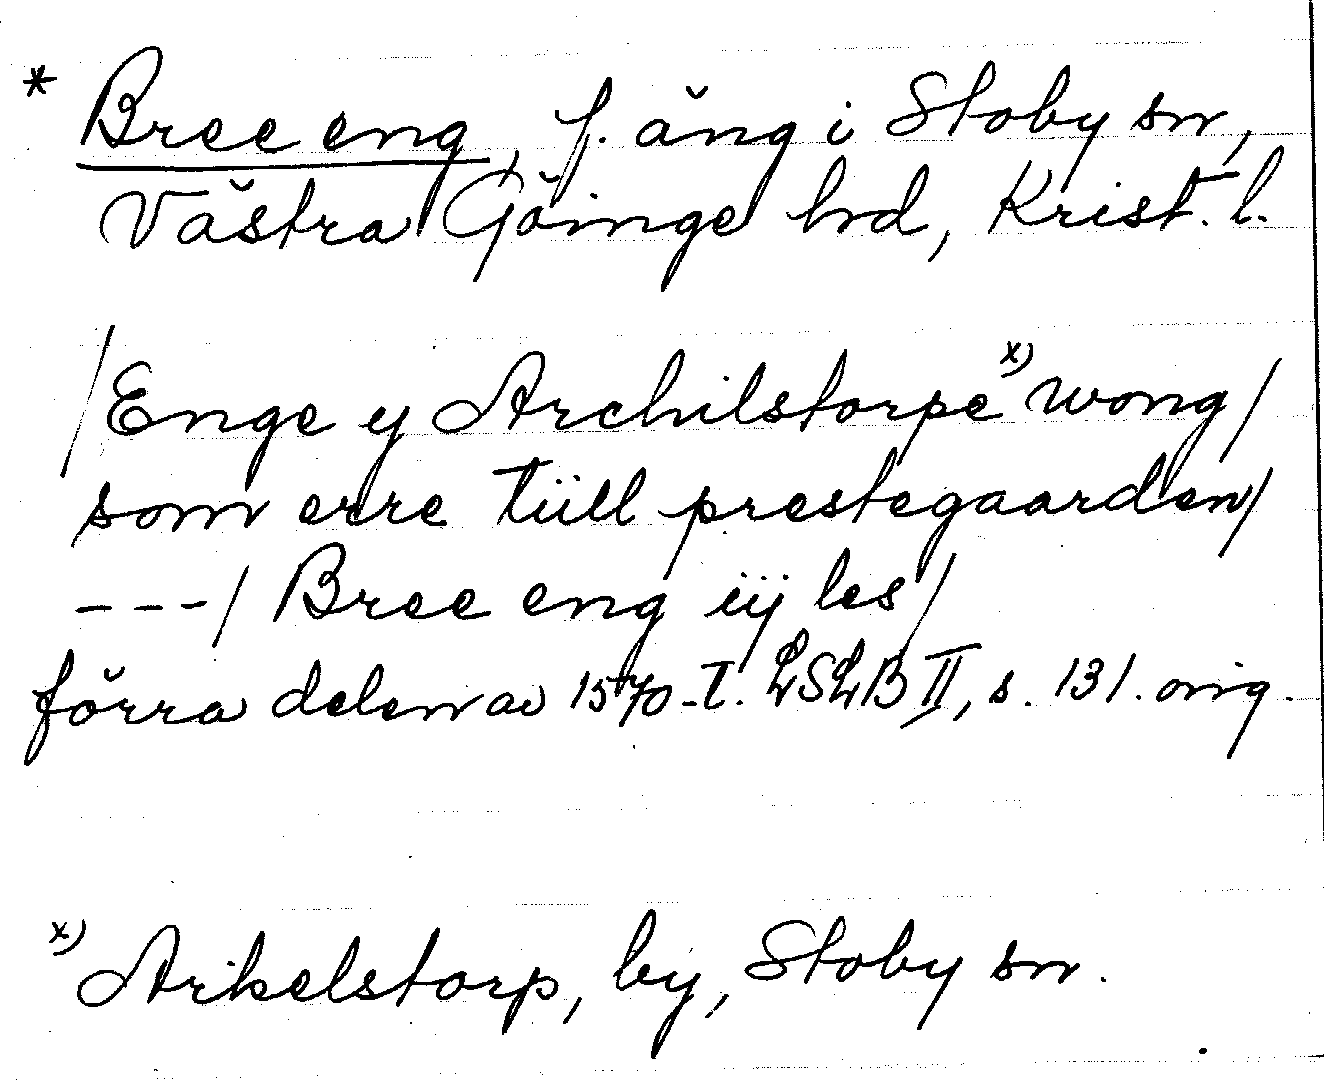 * Bree eng, f. äng i Stoby sn,
Västra Göinge hrd, Krist. l.
/Enge y Archilstorpe x) wong/
som erre tiill prestegaarden/
---/ Bree eng iij les/
förra delen av 1570-t. LSLB II, s. 131. orig.
x) Arkelstorp, by, Stoby sn.